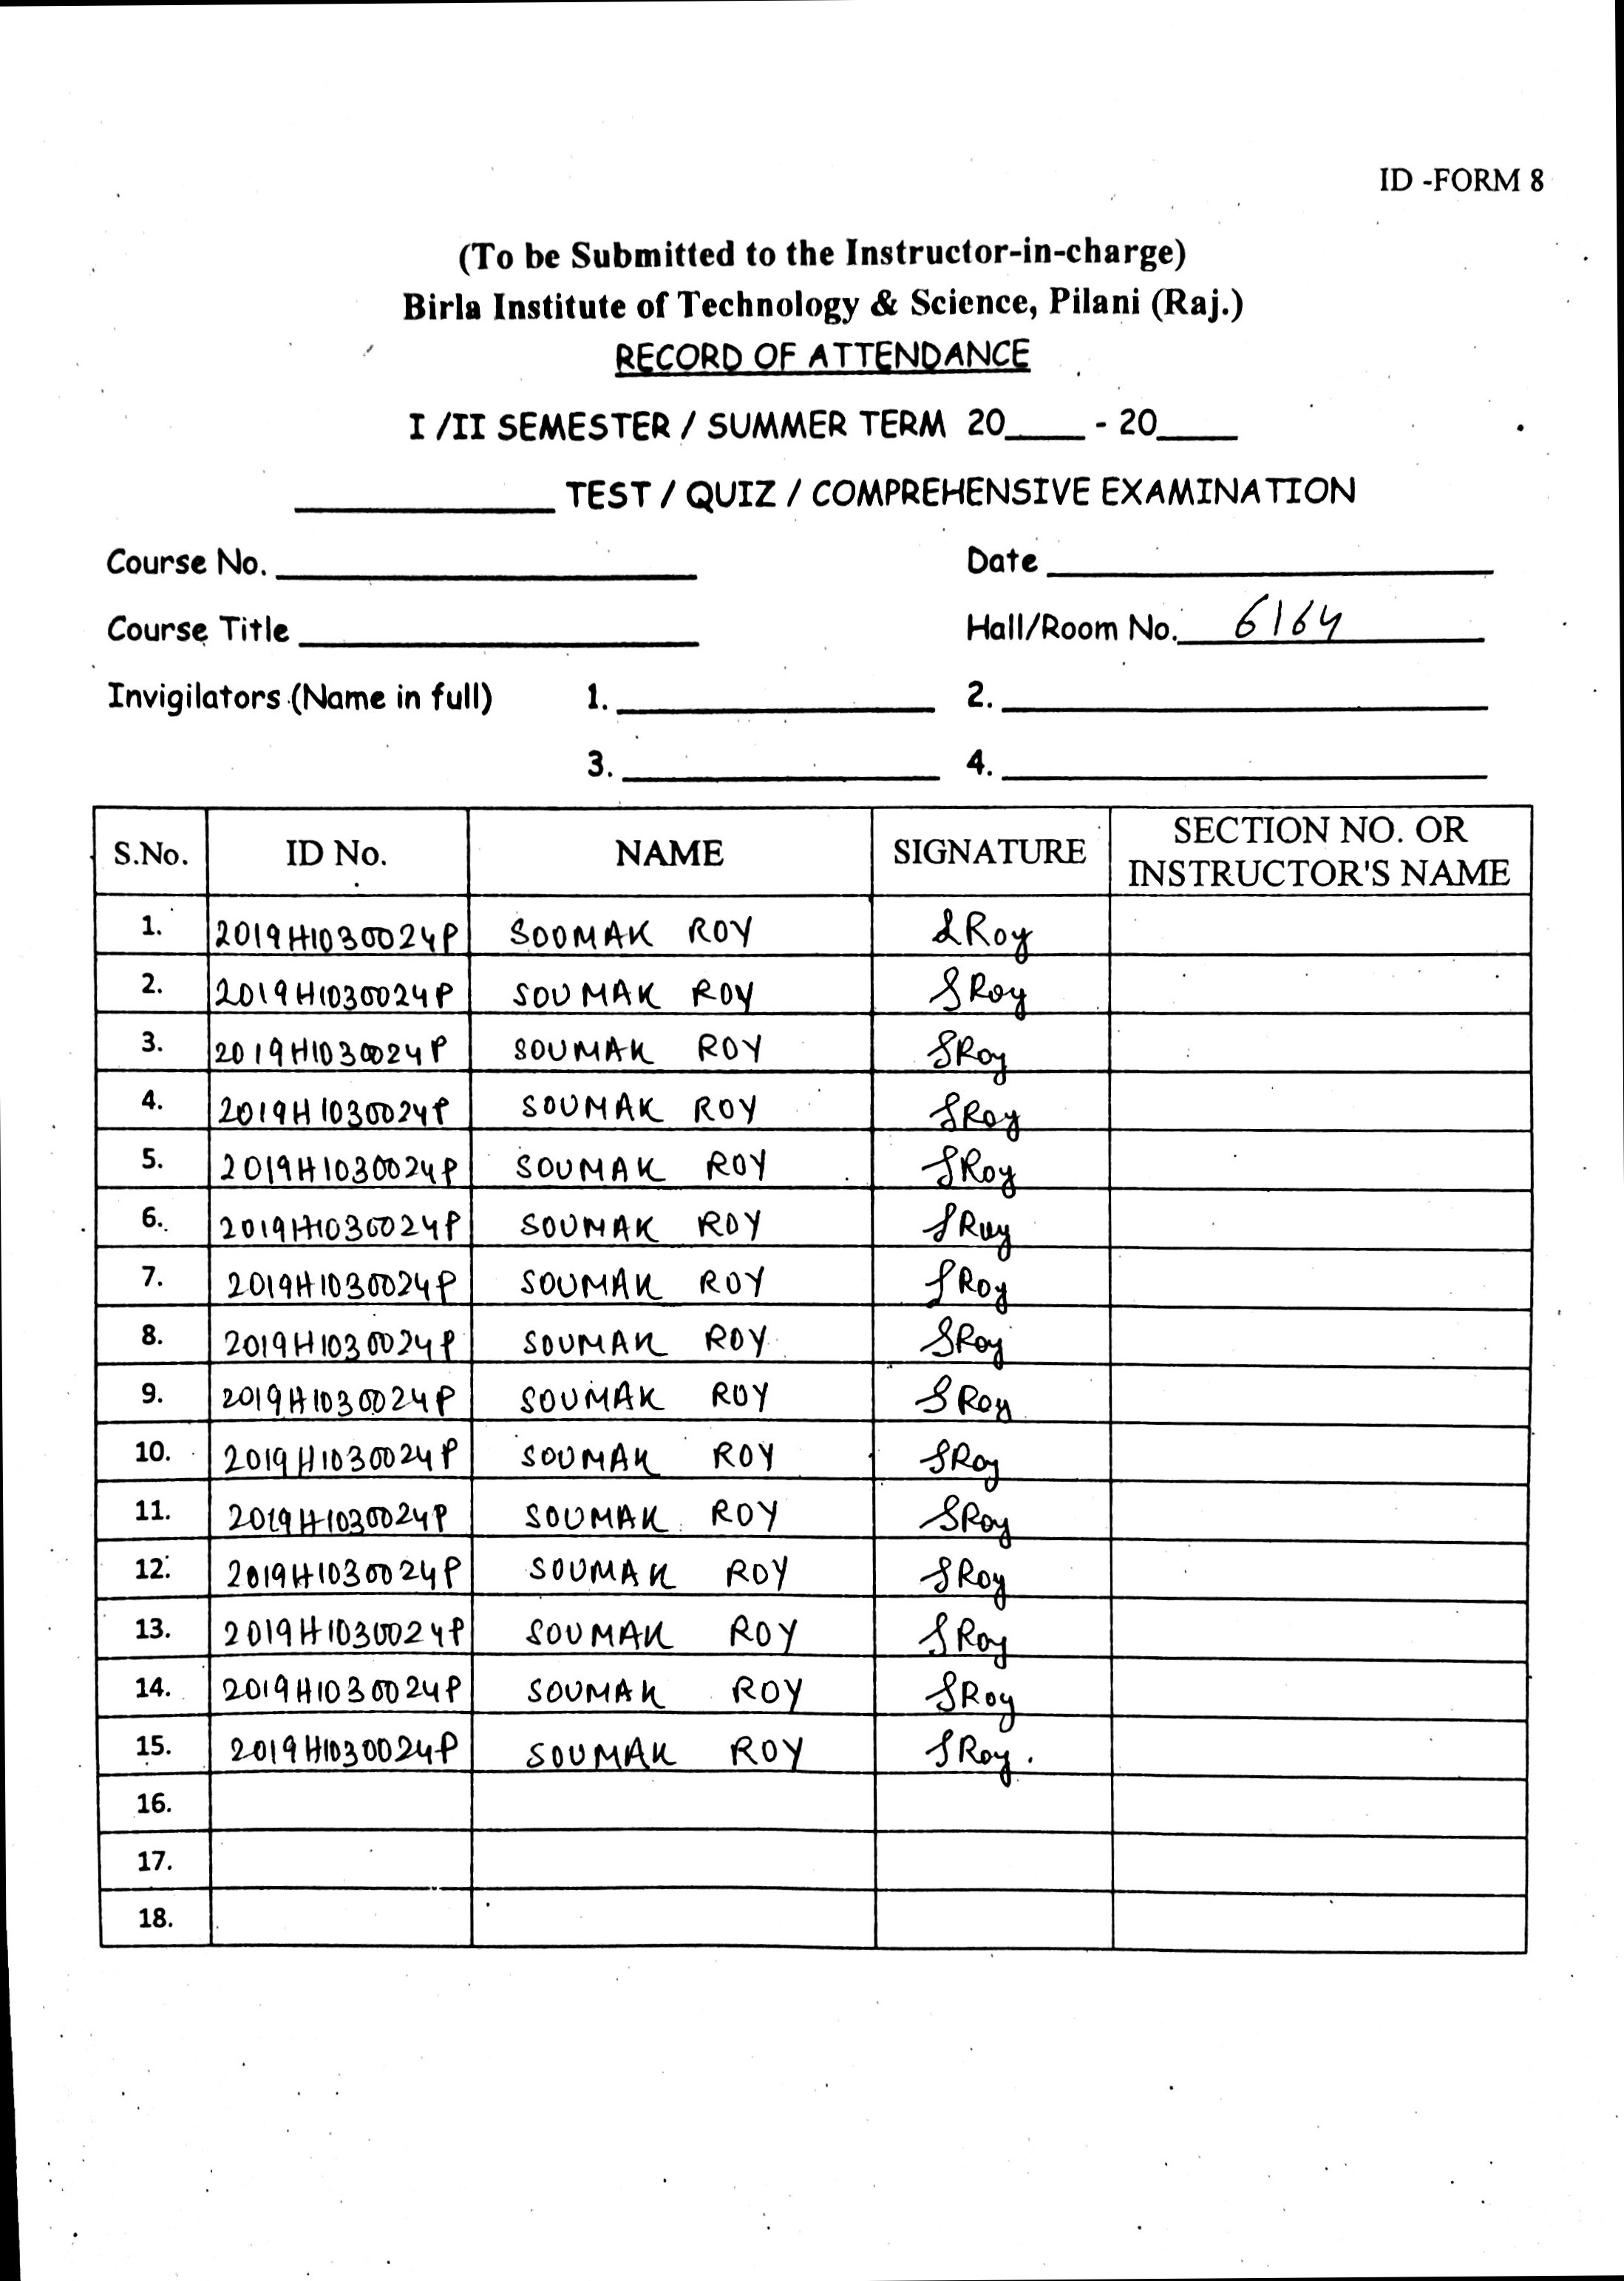 ID -FORM 8
(To be Submitted to the Instructor-in-charge)
Birla Institute of Technology & Science, Pilani (Raj.)
RECORD OF ATTENDANCE
I /II SEMESTER / SUMMER TERM 20____ - 20____
____________ TEST / QUIZ / COMPREHENSIVE EXAMINATION
Course No. ____________ Date ____________
Course Title ____________ Hall/Room No. 6164
Invigilators (Name in full) 1. ____________ 2. ____________
3. ____________ 4. ____________
S.No. ID No. NAME SIGNATURE SECTION NO. OR INSTRUCTOR'S NAME
1. 2019H1030024P SOUMAK ROY SRoy
2. 2019H1030024P SOUMAK ROY SRoy
3. 2019H1030024P SOUMAK ROY SRoy
4. 2019H1030024P SOUMAK ROY SRoy
5. 2019H1030024P SOUMAK ROY SRoy
6. 2019H1030024P SOUMAK ROY SRoy
7. 2019H1030024P SOUMAK ROY SRoy
8. 2019H1030024P SOUMAK ROY SRoy
9. 2019H1030024P SOUMAK ROY SRoy
10. 2019H1030024P SOUMAK ROY SRoy
11. 2019H1030024P SOUMAK ROY SRoy
12. 2019H1030024P SOUMAK ROY SRoy
13. 2019H1030024P SOUMAK ROY SRoy
14. 2019H1030024P SOUMAK ROY SRoy
15. 2019H1030024P SOUMAK ROY SRoy.
16.
17.
18.